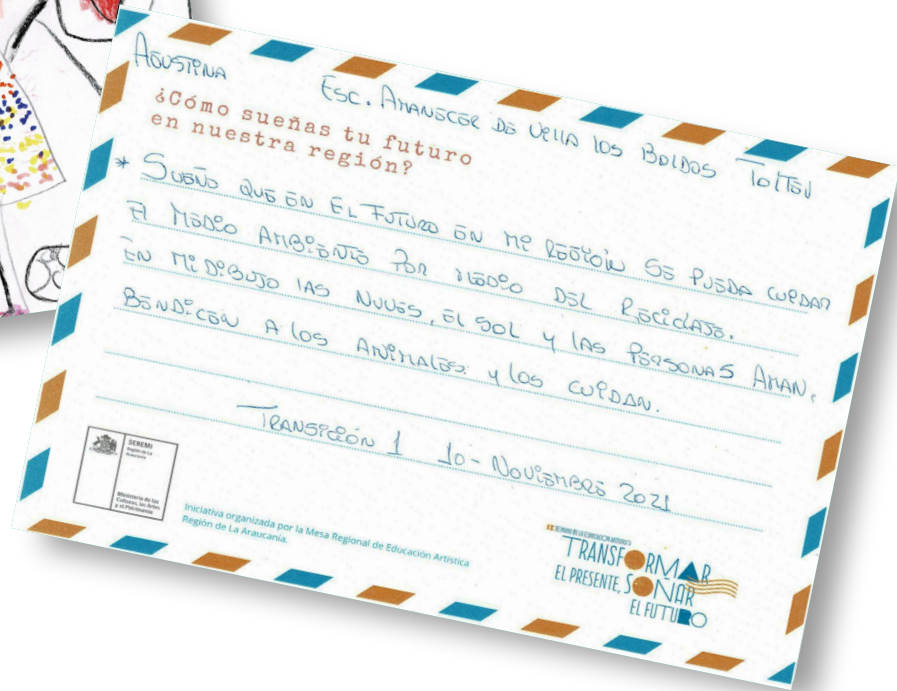 AGUSTINA
ESC. AMANECER DE VILLA LOS BOLDOS TOLTÉN
¿Cómo sueñas tu futuro
en nuestra región?
* SUEÑO QUE EN EL FUTURO EN MI REGIÓIN SE PUEDA CUIDAR
EL MEDIO AMBIENTE POR MEDIO DEL RECICLAJE.
EN MI DIBUJO LAS NUVES, EL SOL Y LAS PERSONAS AMAN,
BENDICEN A LOS ANIMALES. Y LOS CUIDAN.
TRANSICIÓN 1 10 - NOVIEMBRE 2021
SEREMI
Región de La
Araucanía
Ministerio de las
Culturas, las Artes
y el Patrimonio
Iniciativa organizada por la Mesa Regional de Educación Artística
Región de La Araucanía.
IX SEMANA DE LA EDUCACIÓN ARTÍSTICA
TRANSFORMAR
EL PRESENTE, SOÑAR
EL FUTURO